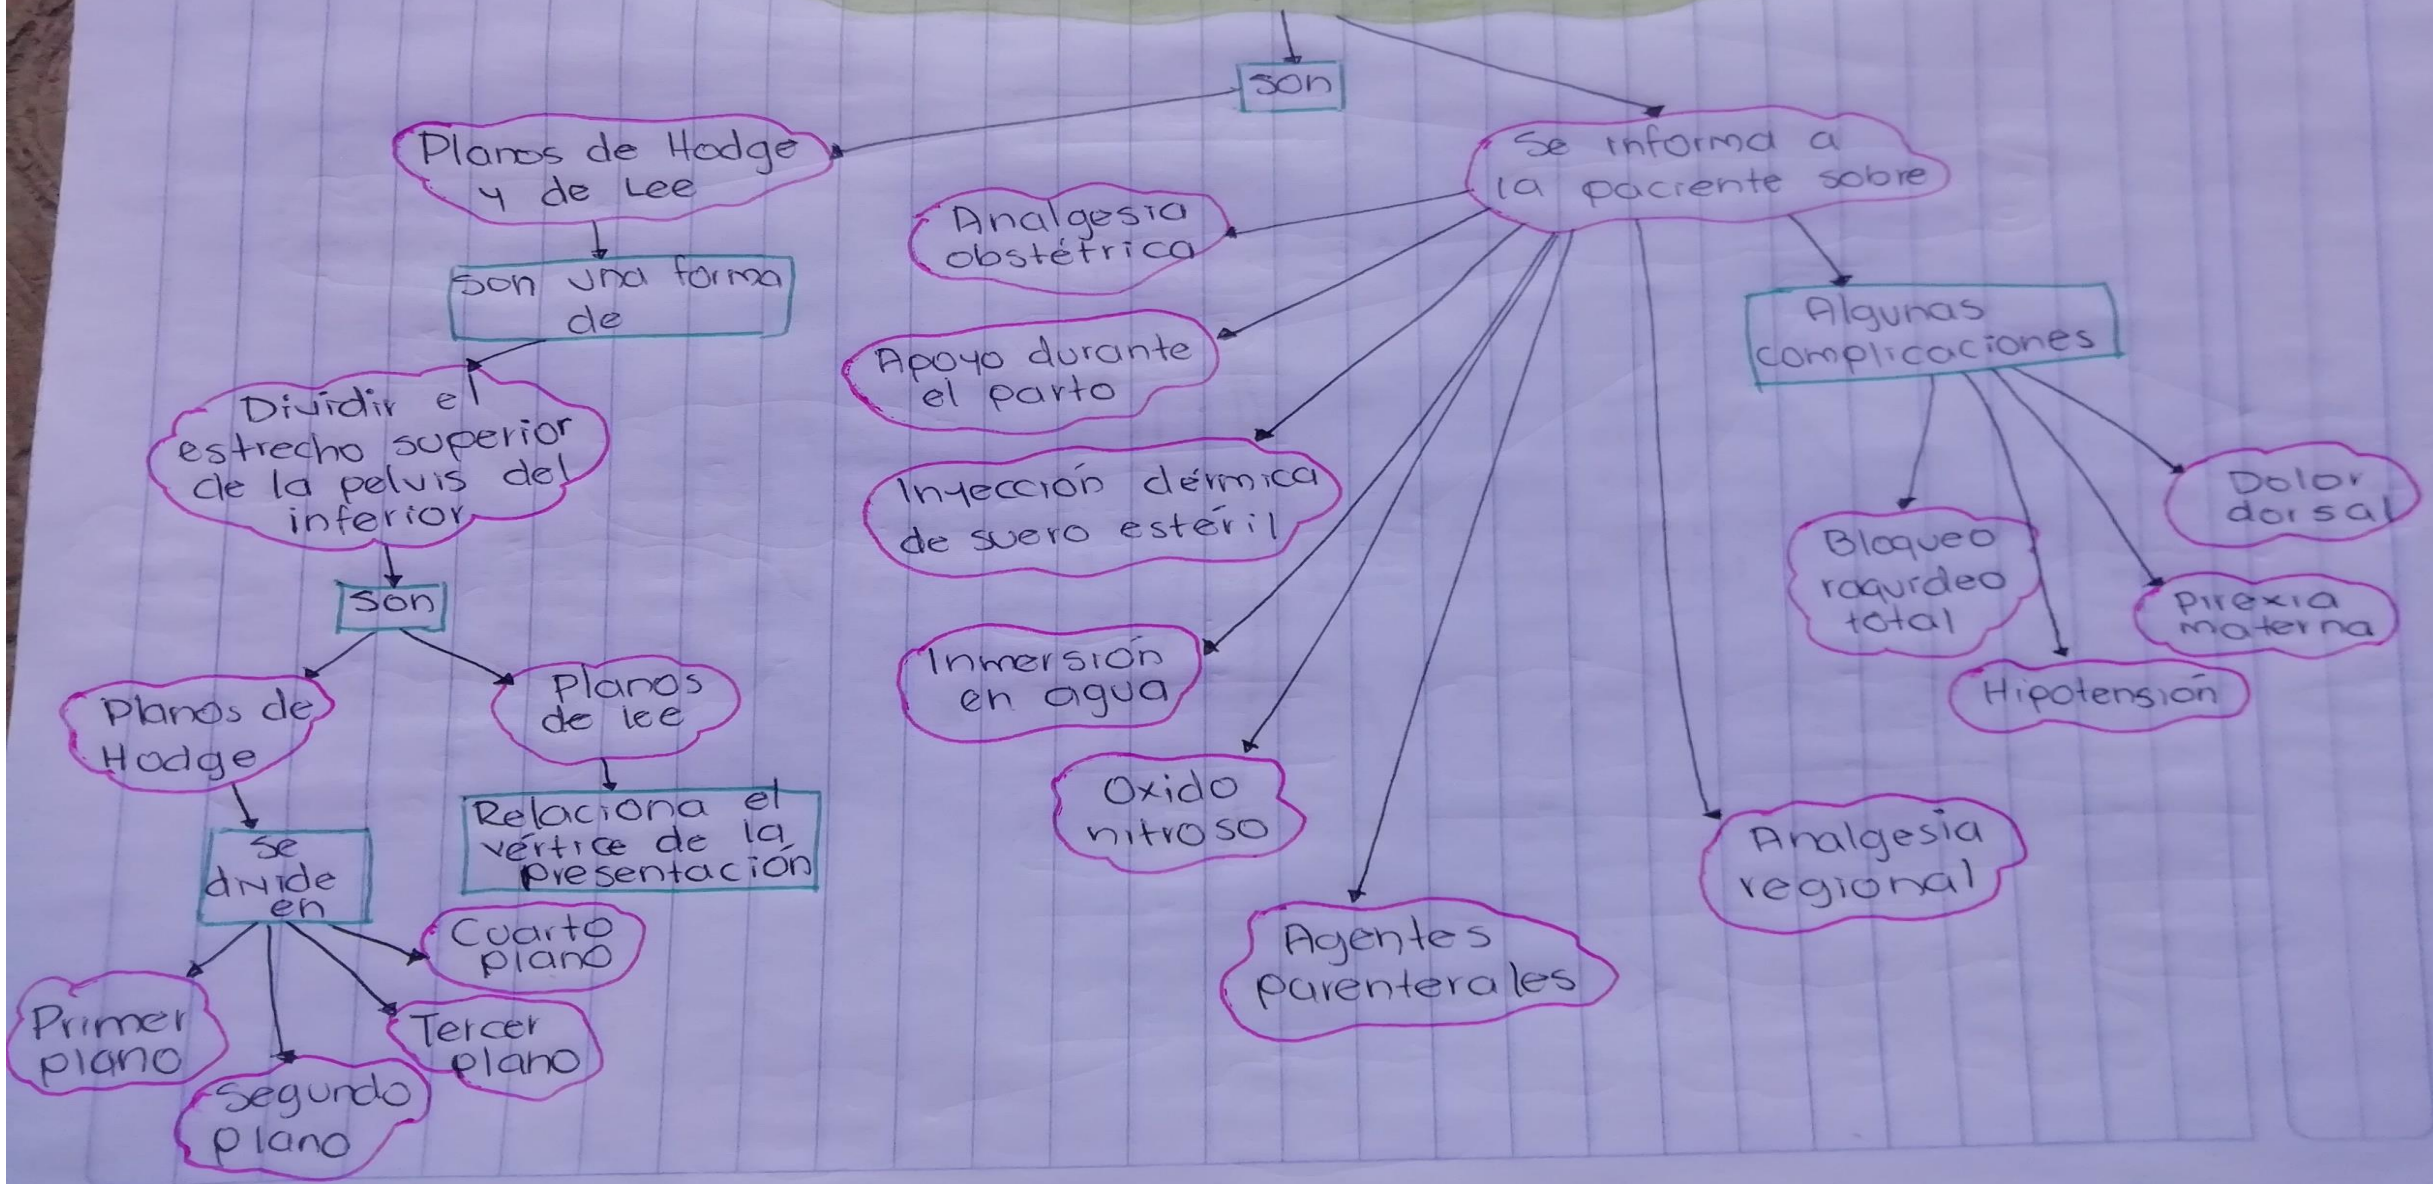 son
Planos de Hodge
y de Lee
son una forma
de
Dividir el
estrecho superior
de la pelvis del
inferior
son
Planos de
Hodge
Planos
de lee
Relaciona el
vértice de la
presentación
se
divide
en
Cuarto
plano
Primer
plano
Tercer
plano
Segundo
plano
Se informa a
la paciente sobre
Analgesia
obstétrica
Apoyo durante
el parto
Inyección dérmica
de suero estéril
Inmersión
en agua
Oxido
nitroso
Agentes
parenterales
Analgesia
regional
Algunas
complicaciones
Bloqueo
raquideo
total
Hipotensión
Pirexia
materna
Dolor
dorsal